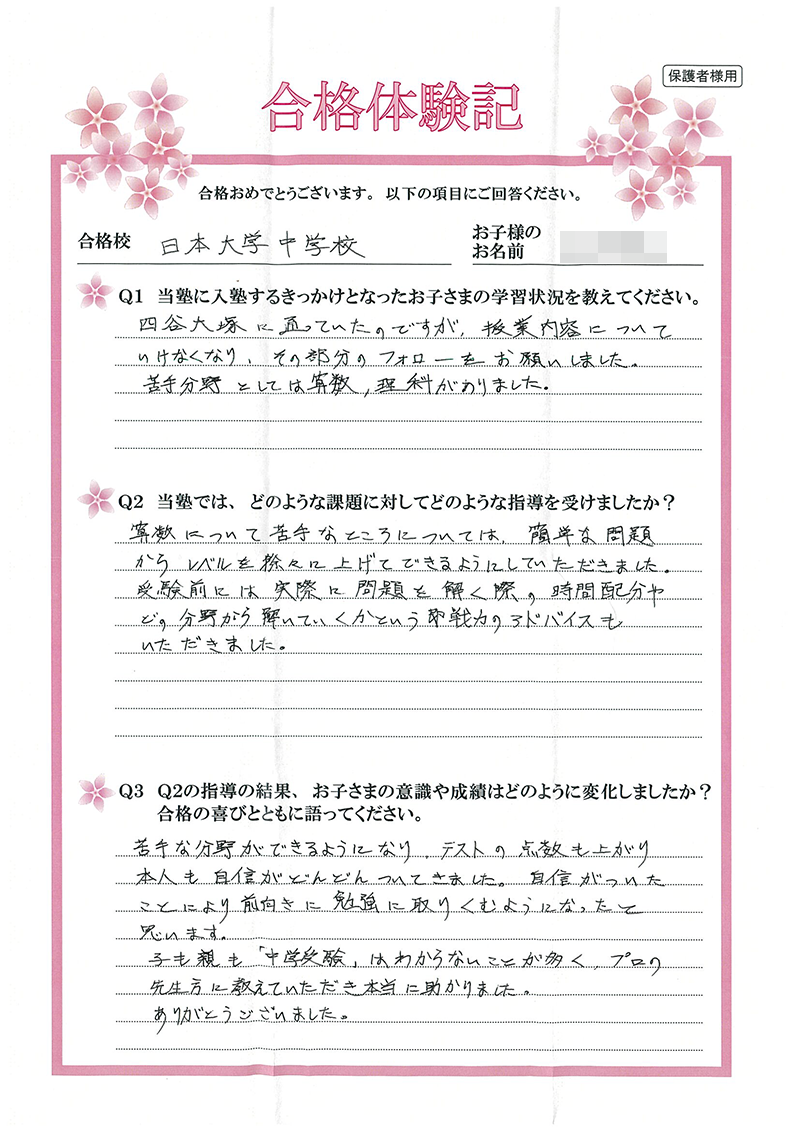 保護者様用
合格体験記
合格おめでとうございます。以下の項目にご回答ください。
合格校 日本大学中学校
お子様の
お名前
Q1 当塾に入塾するきっかけとなったお子さまの学習状況を教えてください。
四谷大塚に通っていたのですが、授業内容について
いけなくなり、その部分のフォローをお願いしました。
苦手分野としては算数,理科がありました。
Q2 当塾では、どのような課題に対してどのような指導を受けましたか？
算数について苦手なところについては、簡単な問題
からレベルを徐々に上げてできるようにしていただきました。
受験前には実際に問題を解く際の時間配分や
どの分野から解いていくかという即戦力のアドバイスも
いただきました。
Q3 Q2の指導の結果、お子さまの意識や成績はどのように変化しましたか？
合格の喜びとともに語ってください。
苦手な分野ができるようになり、テストの点数も上がり
本人も自信がどんどんついてきました。自信がついた
ことにより前向きに勉強に取りくむようになったと
思います。
子も親も「中学受験」はわからないことが多く、プロの
先生方に教えていただき本当に助かりました。
ありがとうございました。